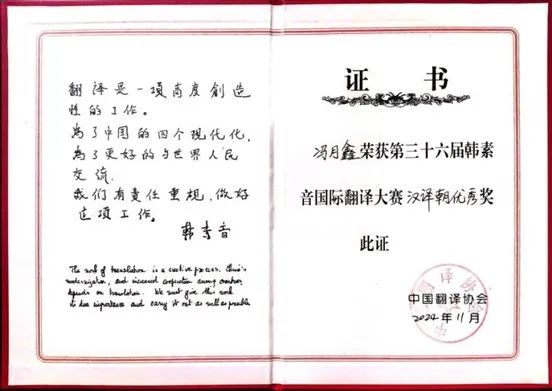 翻译是一项高度創造
性的工作。
为了中国的四个现代化,
为了更好的与世界人民
交流,
我们有责任重视,做好
这项工作。
韩素音
The work of translation is a creative process. China's
modernization, and increased cooperation among countries,
depends on translation. We must give this work
its due importance and carry it out as well as possible
证书
冯月鑫荣获第三十六届韩素
音国际翻译大赛汉译朝优秀奖
此证
中国翻译协会
2024年11月